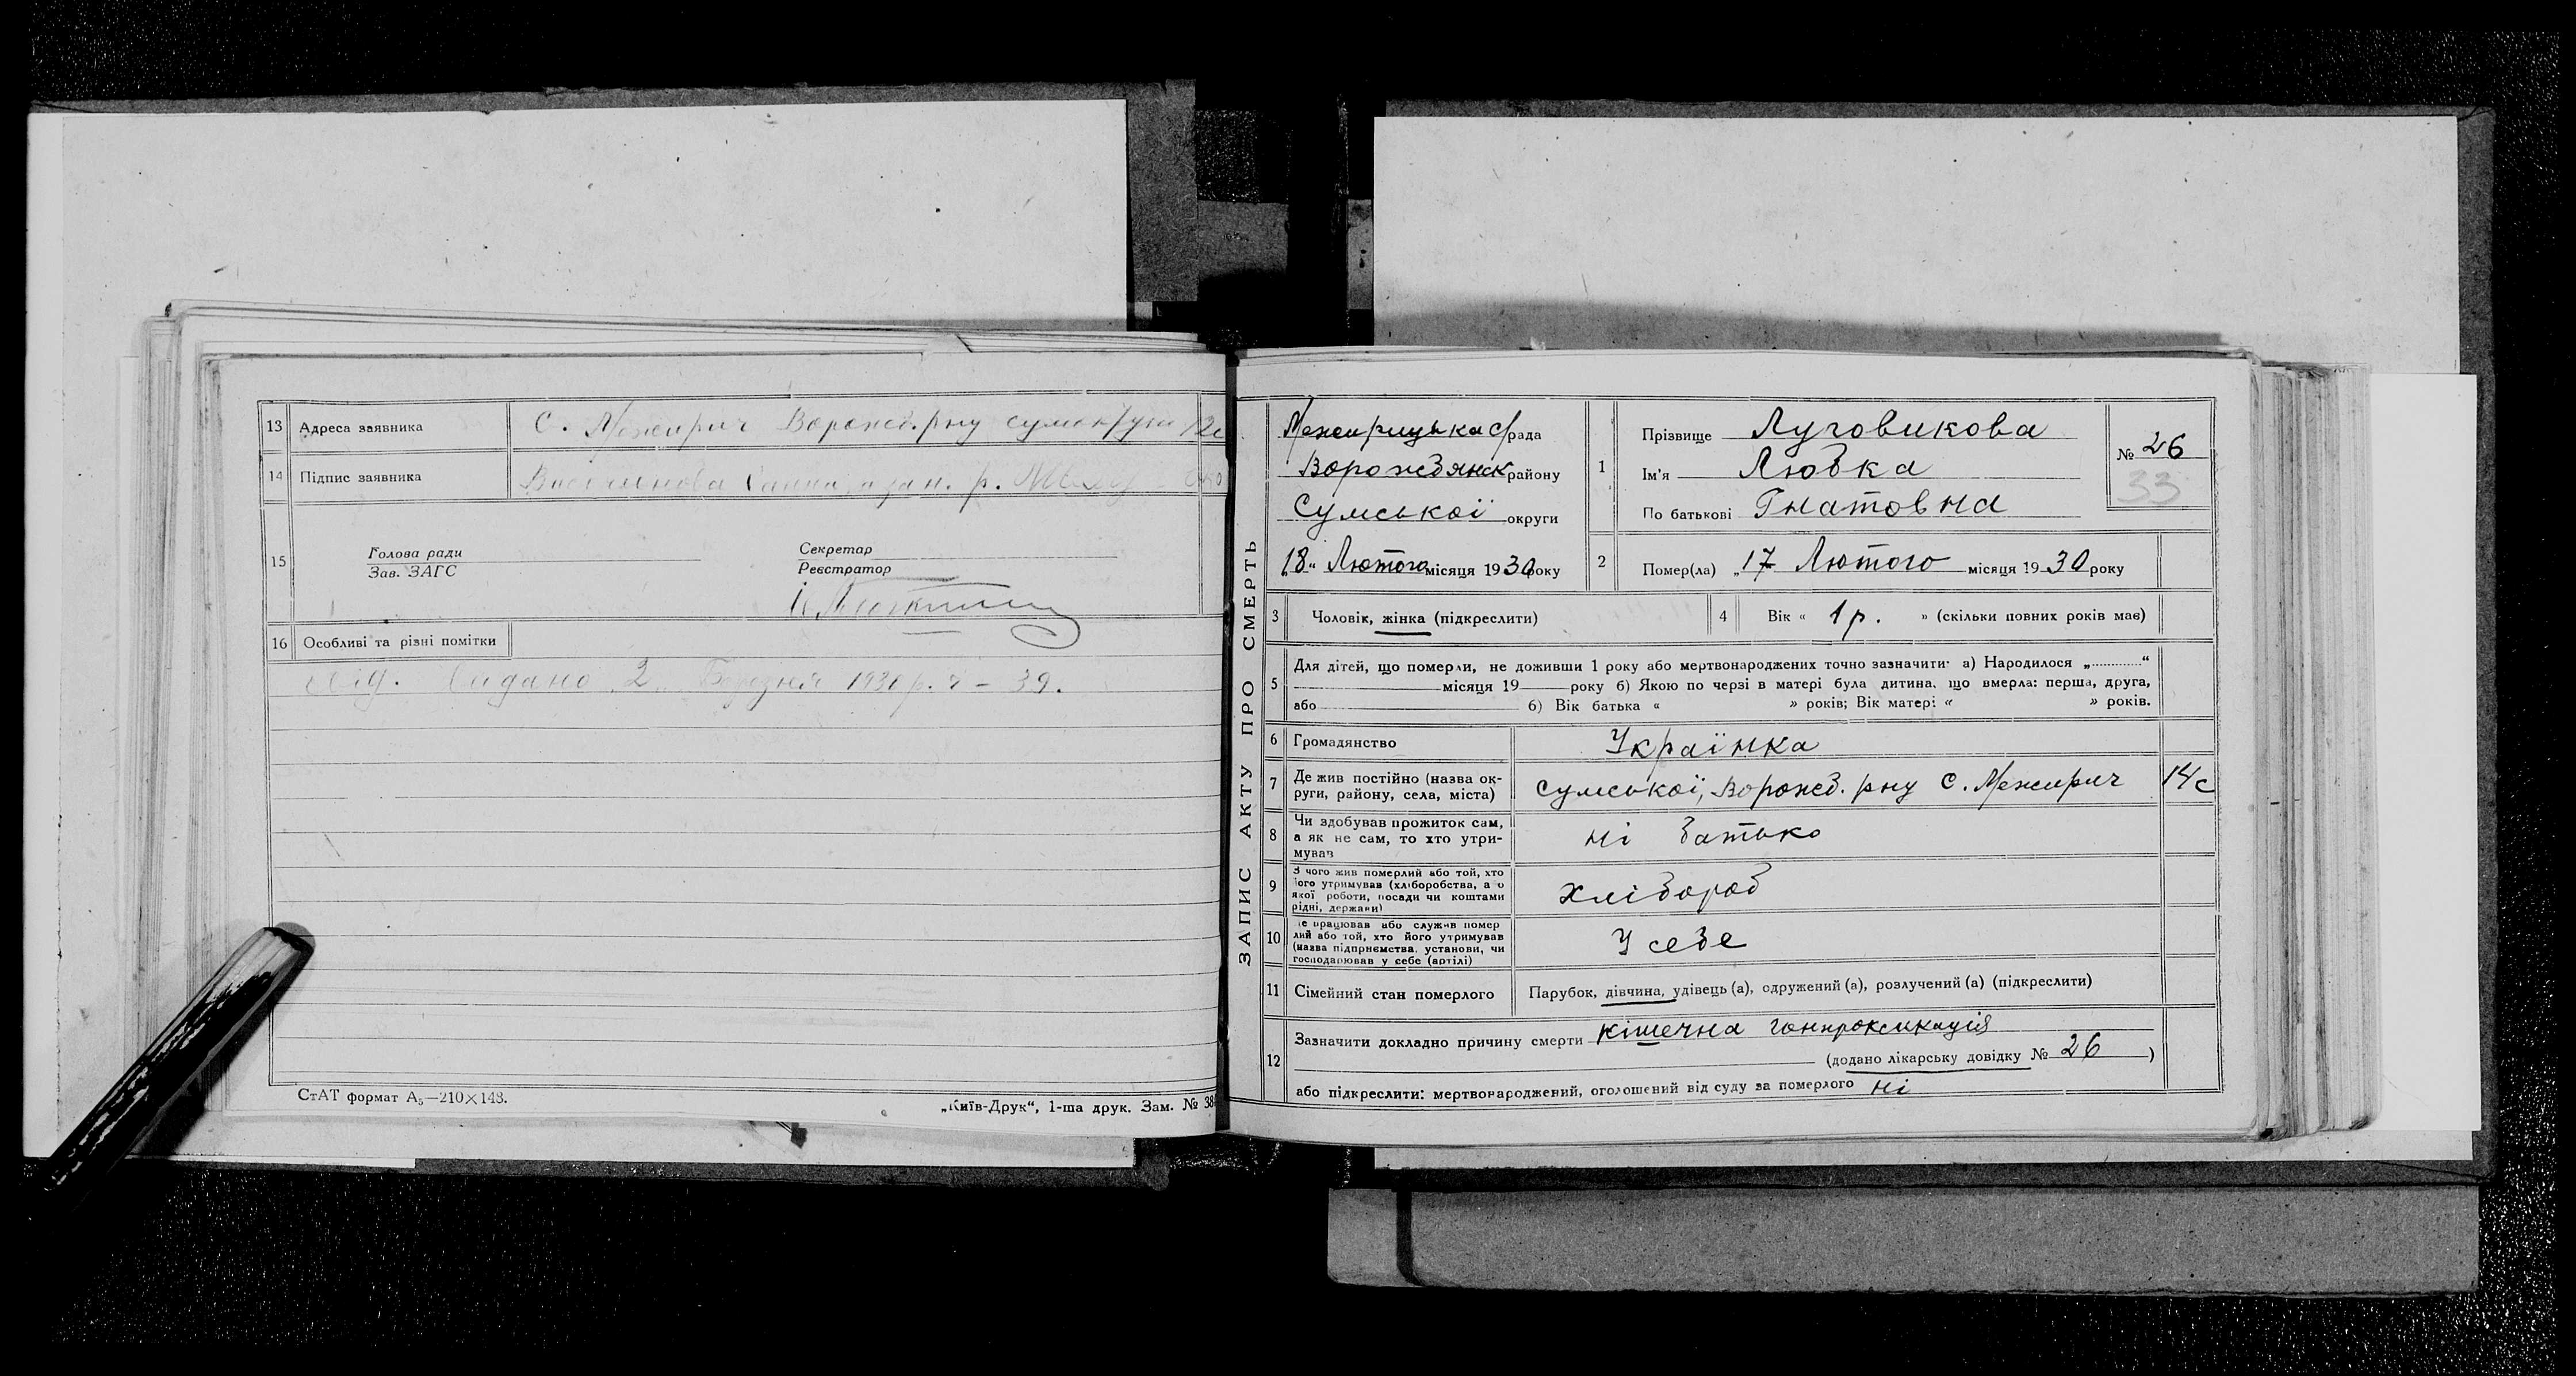 13 Адреса заявника С. Межирич Ворожд. рну сумокруги
14 Підпис заявника
15 Голова ради Секретар
Зав. ЗАГС Реєстратор
16 Особливі та різні помітки
Видано 2 Березня 1930 р. 39.
СтАТ формат А5—210×148.
„Київ-Друк“, 1-ша друк. Зам. № 38
ЗАПИС АКТУ ПРО СМЕРТЬ
Межирицька с/рада
Ворождянск району
Сумської округи
„18“ Лютого місяця 1930 року
1 Прізвище Луговикова
Ім'я Любка
По батькові Гнатовна
№ 26
33
2 Помер(ла) „17 Лютого місяця 1930 року
3 Чоловік, жінка (підкреслити)
4 Вік « 1 р. » (скільки повних років має)
5 Для дітей, що померли, не доживши 1 року або мертвонароджених точно зазначити: а) Народилося „ “
місяця 19 року б) Якою по черзі в матері була дитина, що вмерла: перша, друга,
або б) Вік батька « » років; Вік матері « » років.
6 Громадянство Українка
7 Де жив постійно (назва ок-
руги, району, села, міста) Сумської, Ворожд. рну С. Межирич 14с
8 Чи здобував прожиток сам,
а як не сам, то хто утри-
мував ні батько
9 З чого жив померлий або той, хто
його утримував (хліборобства, а о
якої роботи, посади чи коштами
рідні, держави) Хлібороб
10 Де працював або служив помер
лий або той, хто його утримував
(назва підприємства, установи, чи
господарював у себе (артілі) У себе
11 Сімейний стан померлого Парубок, дівчина, удівець (а), одружений (а), розлучений (а) (підкреслити)
12 Зазначити докладно причину смерти кішечна
(додано лікарську довідку № 26 )
або підкреслити: мертвонароджений, оголошений від суду за померлого ні